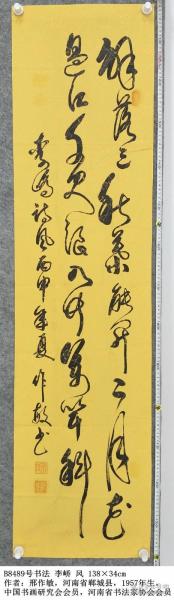 解落三秋叶能开二月花
过江千尺浪入竹万竿斜
李峤诗风丙申年夏作敏书
B8489号书法 李峤 风 138×34cm
作者：邢作敏，河南省郸城县，1957年生，
中国书画研究会会员，河南省书法家协会会员